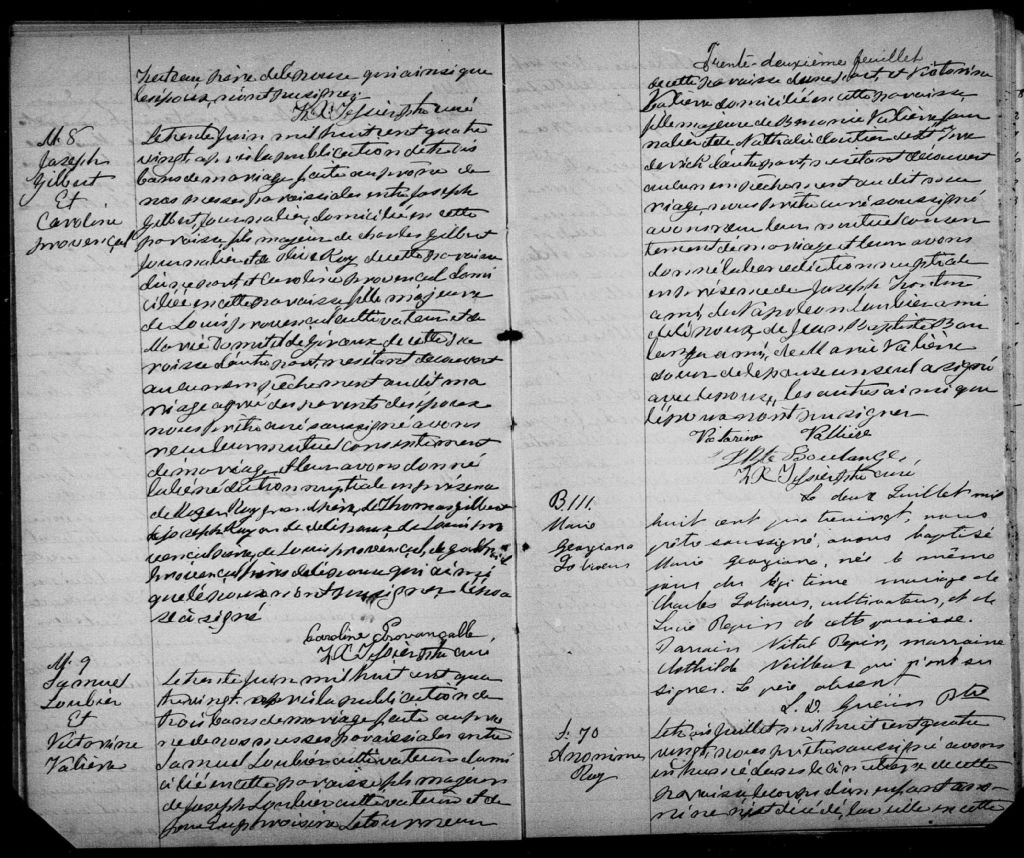 père de l'épouse qui ainsi que
les époux n'ont pu signer.
M. 8
Joseph
Gilbert
Et
Caroline
provençal
Le trente Juin mil huit cent quatre
vingt, après la publication de trois
bans de mariage faite au prône de
nos messes paroissiales entre Joseph
Gilbert, Journalier, domicilié en cette
paroisse, fils majeur de Charles Gilbert
Journalier et de Roy de cette paroisse
d'une part, et Caroline provençal domi
ciliée en cette paroisse, fille majeure
de Louis provençal cultivateur et de
Marie de cette pa
roisse d'autre part, ne s'étant découvert
aucun empêchement au dit ma
riage agréé des parents des époux
nous prêtre curé soussigné avons
reçu leur mutuel consentement
de mariage et leur avons donné
la bénédiction nuptiale en présence
de Roger Roy grand père, de Thomas Gilbert
de joseph Roy de l'époux, de Louis pro
vençal père, de Louis provençal, de
provençal frères de l'épouse qui ainsi
que l'époux n'ont pu signer, l'épou
se a signé
Caroline Provangalle
Ptre curé
M. 9
Samuel
Loubier
Et
Victorine
Valière
Le trente Juin mil huit cent qua
tre vingt, après la publication de
trois bans de mariage faite au prô
ne de nos messes paroissiales entre
Samuel Loubier cultivateur domi
cilié en cette paroisse, fils majeur
de Joseph Loubier cultivateur et de
Letourneau
Trente-deuxième feuillet
de cette paroisse d'une part et Victorine
Valière domiciliée en cette paroisse,
fille majeure de Valière jour
nalier et de Nathalie Cloutier de St
d'autre part, ne s'étant découvert
aucun empêchement au dit ma
riage, nous prêtre curé soussigné
avons reçu leur mutuel consen
tement de mariage et leur avons
donné la bénédiction nuptiale
en présence de Joseph
ami, de Napoléon Loubier ami
de l'époux, de Jean Baptiste Bou
langer ami, de Marie Valière
sœur de l'épouse un seul a signé
avec l'épouse, les autres ainsi que
l'époux n'ont pu signer
Victorine Vallière
Jbte Boulange,
Ptre curé
B. 111.
Marie
Georgiana
Le deux Juillet mil
huit cent quatrevingt, nous
prêtre soussigné, avons baptisé
Marie Georgiana, née le même
jour du légitime mariage de
Charles cultivateur, et de
Lucie Pepin de cette paroisse.
Parrain Vital Pepin, marraine
Mathilde Veilleux qui n'ont su
signer. Le père absent
Ptre
S. 70
Anonime
Roy
Le trois juillet mil huit cent quatre
vingt, nous prêtre soussigné avons
inhumé dans le cimetière de cette
paroisse le corps d'un enfant ano-
nime décédé la veille en cette